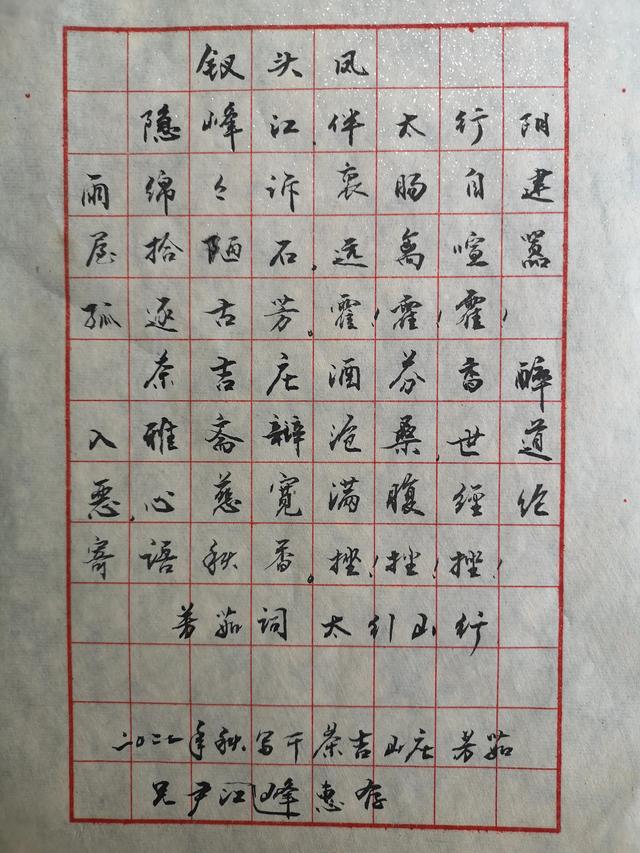 钗头凤
隐峰江,伴太行阴
雨绵々诉衷肠自建
屋拾陋石,远离喧嚣
孤逐古芳。霍!霍!霍!
茶吉庄酒芬香醉
入雅斋辩沧桑,世道
恶,心慈寬满腹經纶
寄语秋香。挫!挫!挫!
芳茹词 太引山行
二〇二二年秋写于茶吉山庄 芳茹
兄尹江峰惠存